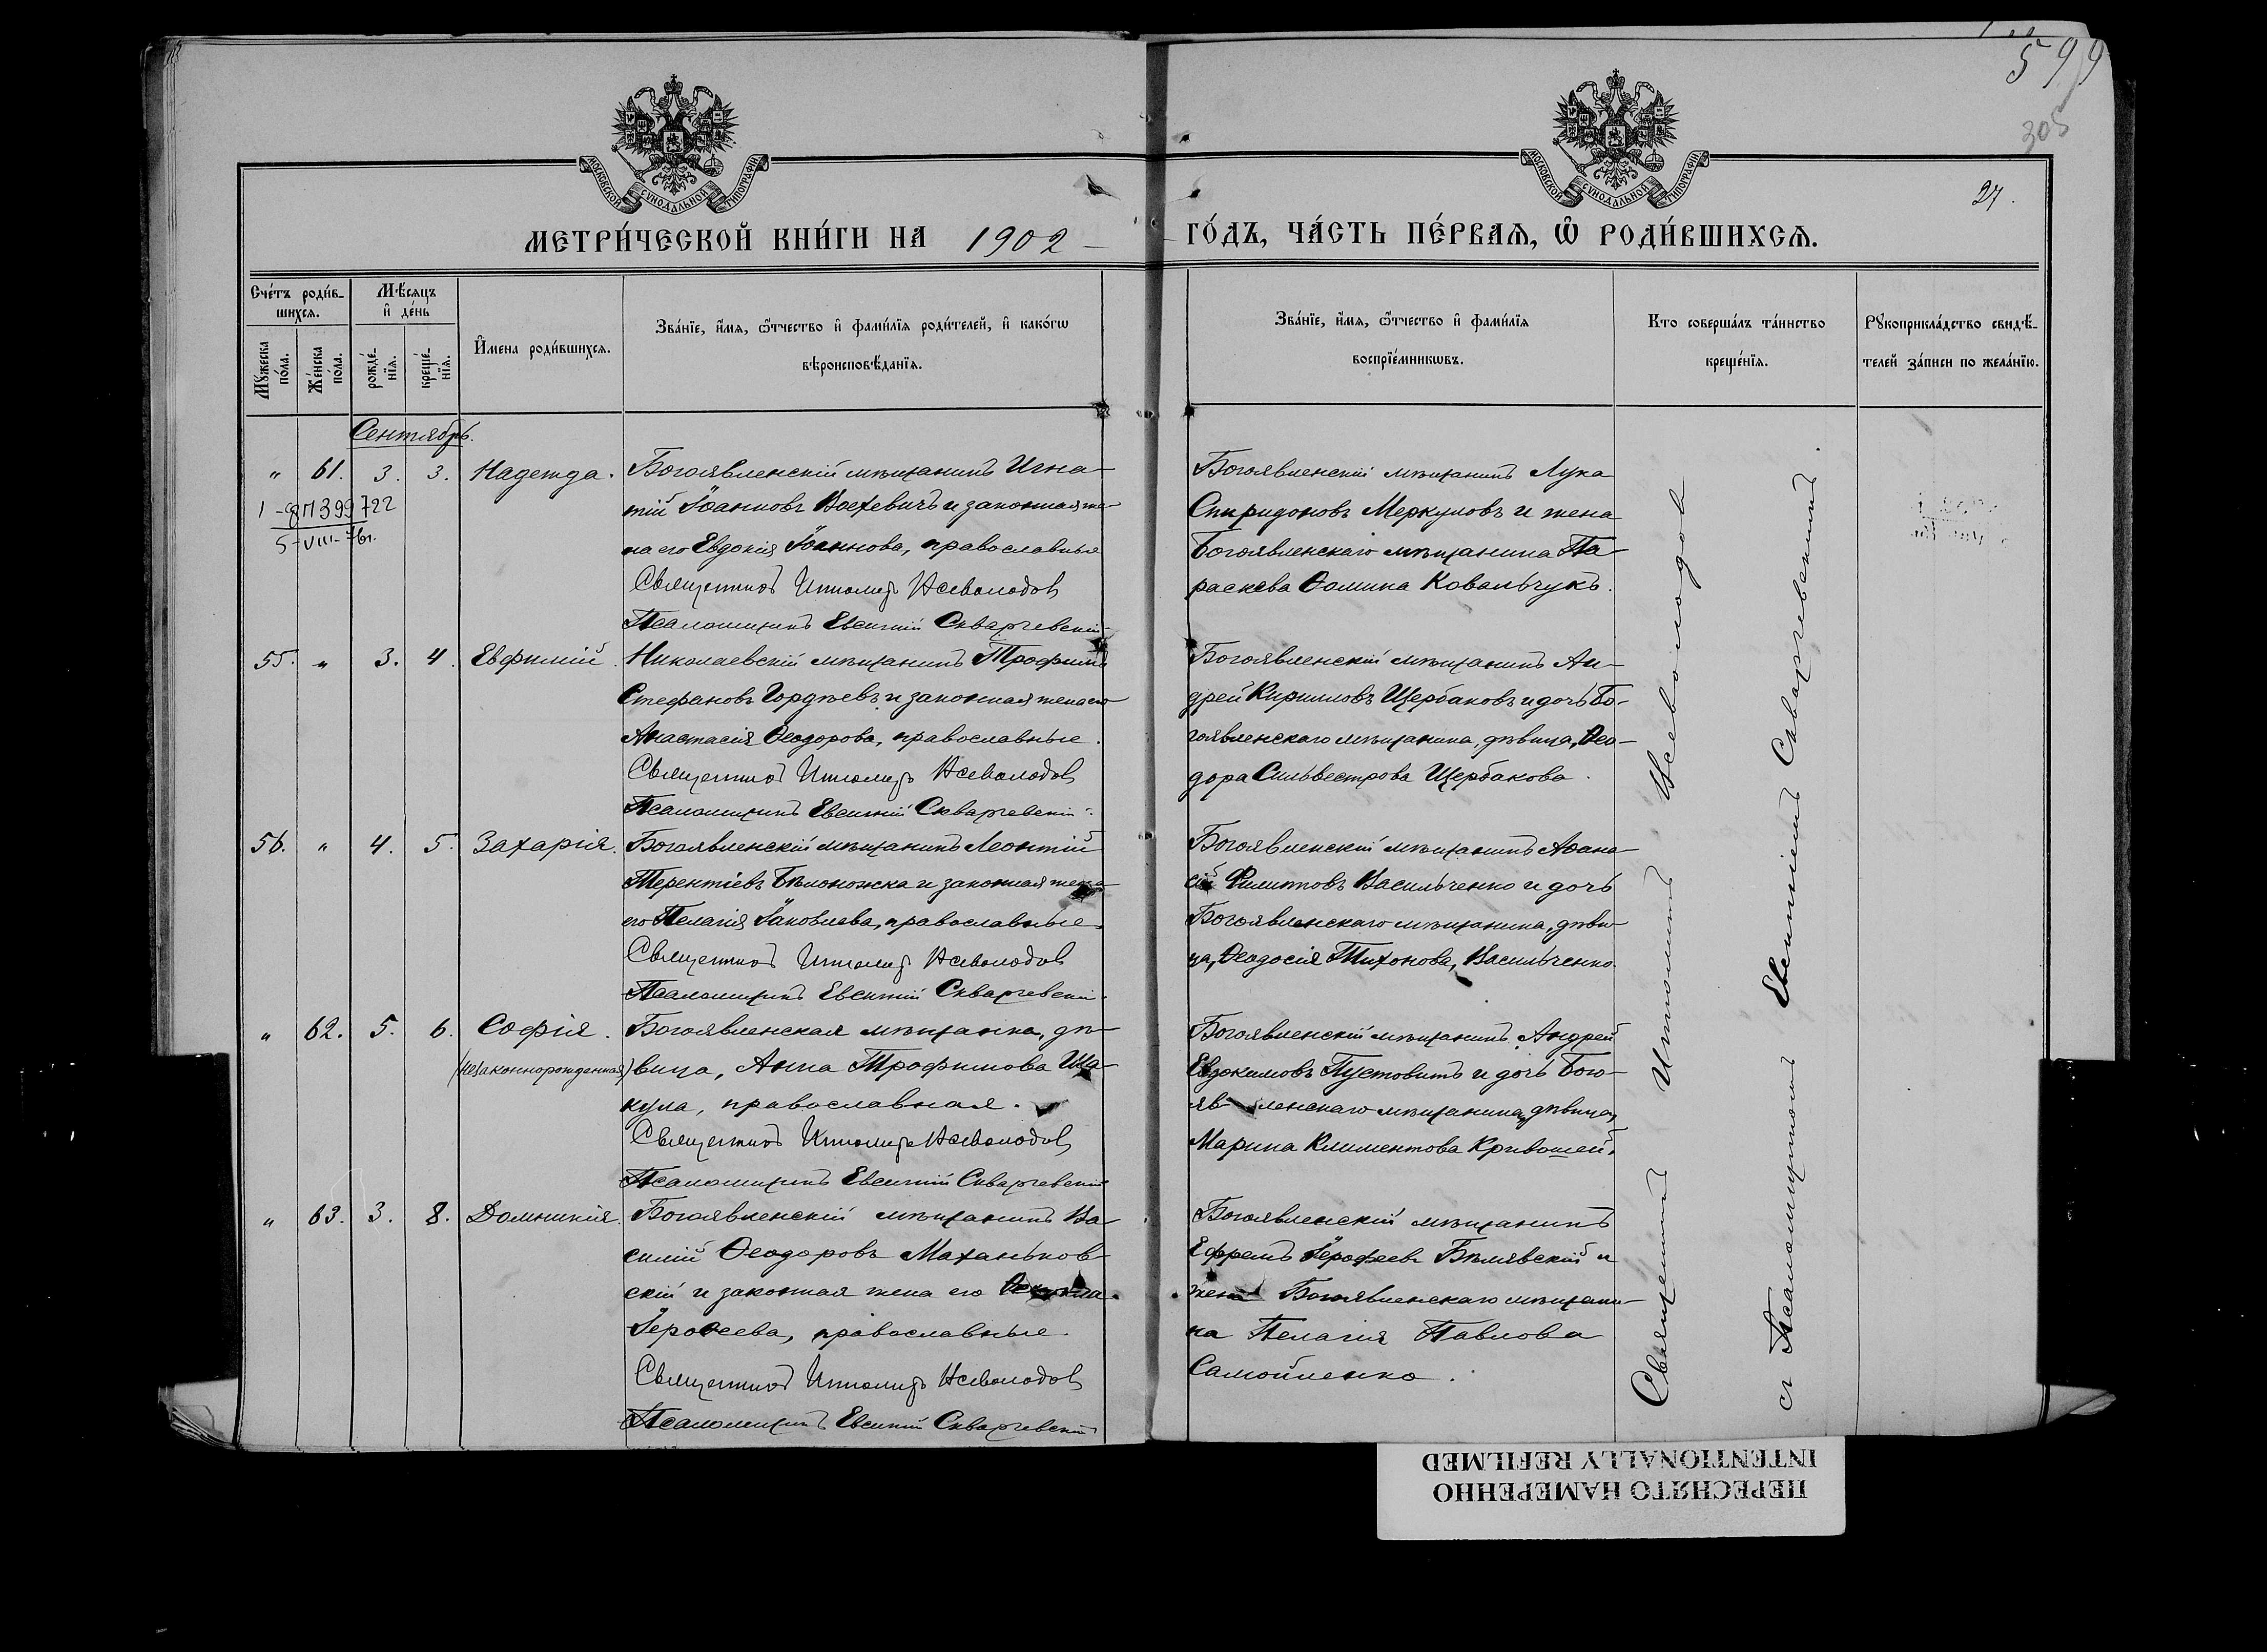 599
305
27.
МОСКОВСКОЙ СѴНОДАЛЬНОЙ ТИПОГРАФІИ
МОСКОВСКОЙ СѴНОДАЛЬНОЙ ТИПОГРАФІИ
МЕТРИ́ЧЕСКОЙ КНИ́ГИ НА 1902 ГО́ДЪ, ЧА́СТЬ ПЕ́РВАѦ, Ѡ҆ РОДИ́ВШИХСѦ.
Сче́тъ роди́вшихсѧ.
Мꙋ́жеска по́ла.
Же́нска по́ла.
Мѣ́сѧцъ и҆ де́нь
рожде́нїѧ.
креще́нїѧ.
И҆мена роди́вшихсѧ.
Зва́нїе, и҆́мѧ, ѻ҆́тчество и҆ фами́лїѧ роди́телей, и҆ како́гѡ
вѣроисповѣ́данїѧ.
Зва́нїе, и҆́мѧ, ѻ҆́тчество и҆ фами́лїѧ
воспрїе́мникѡвъ.
Кто соверша́лъ та́инство
креще́нїѧ.
Рꙋкоприкла́дство свидѣ́телей за́писи по жела́нїю.
Сентябрь.
" 61. 3. 3. Надежда.
Богоявленскій мѣщанинъ Игна-
тій Іоанновъ Восхевичъ и законная же-
на его Евдокія Іоаннова, православные
Священникъ Всеволодовъ
Псаломщикъ Евгеній Скваргевскій
5-VIII-
Богоявленскій мѣщанинъ Лука
Спиридоновъ Меркуловъ и жена
Богоявленскаго мѣщанина Па-
раскева Ѳомина Ковальчукъ.
55. " 3. 4. Евфимій
Николаевскій мѣщанинъ Трофимъ
Стефановъ Гордѣевъ и законная жена его
Анастасія Ѳеодорова, православные.
Священникъ Всеволодовъ
Псаломщикъ Евгеній Скваргевскій
Богоявленскій мѣщанинъ Ан-
дрей Кирилловъ Щербаковъ и дочь Бо-
гоявленскаго мѣщанина, дѣвица, Ѳео-
дора Сильвестрова Щербакова.
56. " 4. 5. Захарія.
Богоявленскій мѣщанинъ Леонтій
Терентіевъ Бѣлоножка и законная жена
его Пелагія Іаковлева, православные.
Священникъ Всеволодовъ
Псаломщикъ Евгеній Скваргевскій
Богоявленскій мѣщанинъ Аѳана-
сій Филипповъ Васильченко и дочь
Богоявленскаго мѣщанина, дѣви-
ца, Ѳеодосія Тихонова, Васильченко.
" 62. 5. 6. Софія.
(незаконнорожденная)
Богоявленская мѣщанка, дѣ-
вица, Анна Трофимова Ша-
кула, православная.
Священникъ Всеволодовъ
Псаломщикъ Евгеній Скваргевскій
Богоявленскій мѣщанинъ Андрей
Евдокимовъ Пустовитъ и дочь Бого-
явленскаго мѣщанина, дѣвица,
Марина Климентова Кривошей.
" 63. 3. 8. Домникія.
Богоявленскій мѣщанинъ Ва-
силій Ѳеодоровъ Маханьков-
скій и законная жена его
Іероѳеева, православные.
Священникъ Всеволодовъ
Псаломщикъ Евгеній Скваргевскій
Богоявленскій мѣщанинъ
Ефремъ Іерофеевъ Бѣлявскій и
жена Богоявленскаго мѣщани-
на Пелагія Павлова
Самойленко.
Священникъ Всеволодовъ
съ Псаломщикомъ Евгеніемъ Скваргевскимъ.
ПЕРЕСНЯТО НАМЕРЕННО
INTENTIONALLY REFILMED